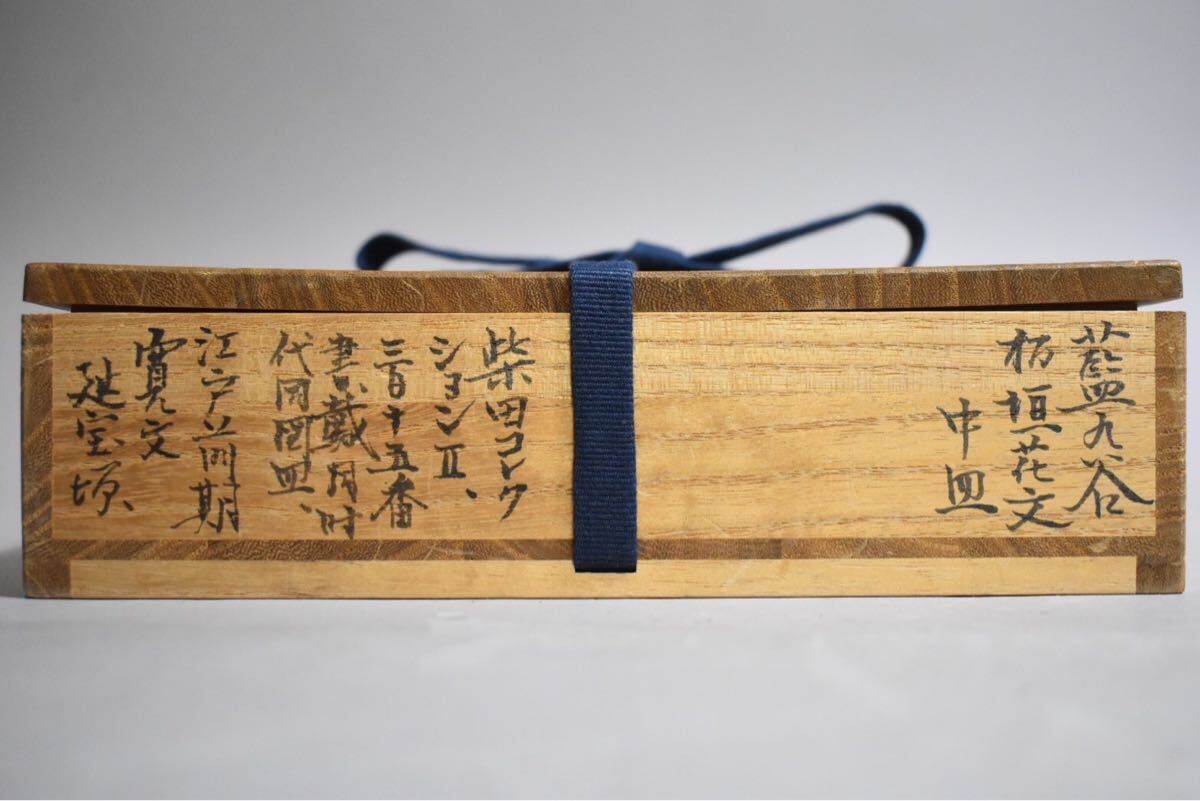 藍九谷
垣花文
中皿
柴田コレク
ションⅡ、
三百十五番
書載同時
代同図皿、
江戸前期
寛文
延宝頃、